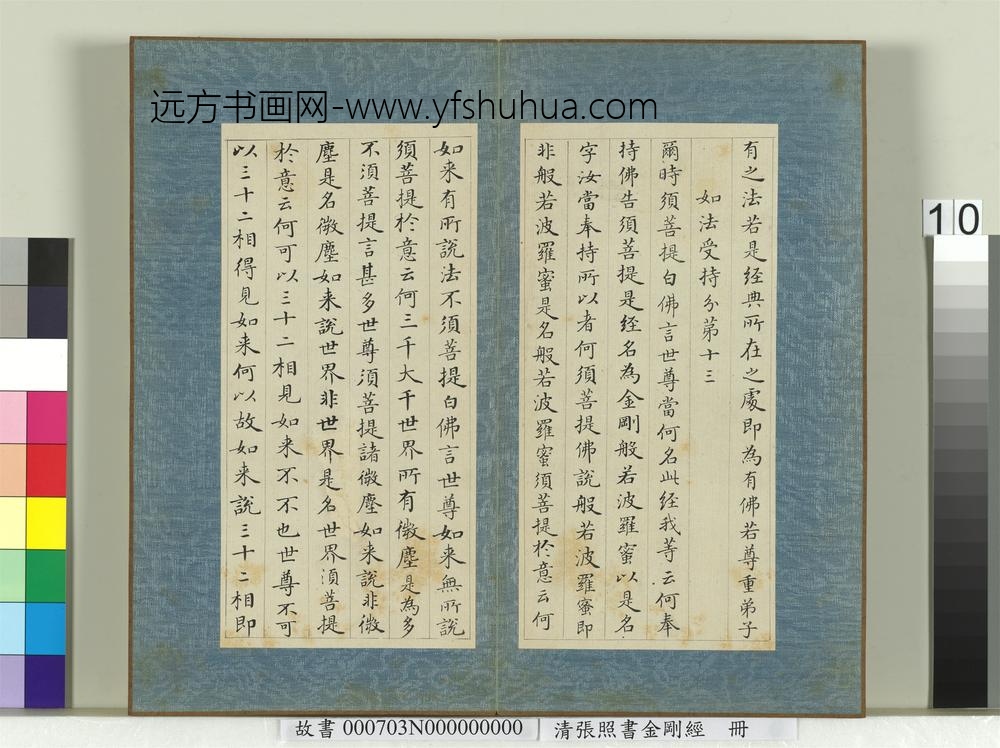 远方书画网-www.yfshuhua.com
有之法若是经典所在之處即為有佛若尊重弟子
如法受持分第十三
爾時須菩提白佛言世尊當何名此经我等云何奉
持佛告須菩提是经名為金剛般若波羅蜜以是名
字汝當奉持所以者何須菩提佛說般若波羅蜜即
非般若波羅蜜是名般若波羅蜜須菩提於意云何
如来有所說法不須菩提白佛言世尊如来無所說
須菩提於意云何三千大千世界所有微塵是為多
不須菩提言甚多世尊須菩提諸微塵如来說非微
塵是名微塵如来說世界非世界是名世界須菩提
於意云何可以三十二相見如来不不也世尊不可
以三十二相得見如来何以故如来說三十二相即
10
故書 000703N000000000 清張照書金剛經 冊